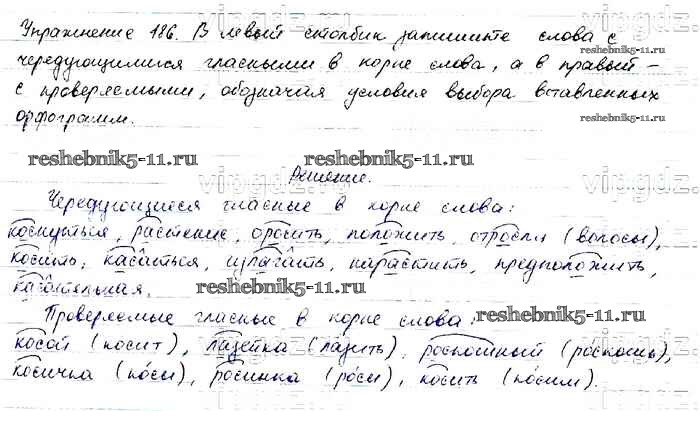 Упражнение 186. В левый столбик запишите слова с
чередующимися гласными в корне слова, а в правый –
с проверяемыми, обозначая условия выбора вставленных
орфограмм.
reshebnik5-11.ru
reshebnik5-11.ru
reshebnik5-11.ru
reshebnik5-11.ru
Решение.
Чередующиеся гласные в корне слова:
коснуться, растение, оросить, положить, отросли (волосы),
косить, касаться, излагать, нарастить, предположить,
касательная.
reshebnik5-11.ru
reshebnik5-11.ru
Проверяемые гласные в корне слова:
косой (косит), лазейка (ла́зить), роскошный (ро́скошь),
косичка (ко́сы), росинка (ро́сы), косить (ко́сим).